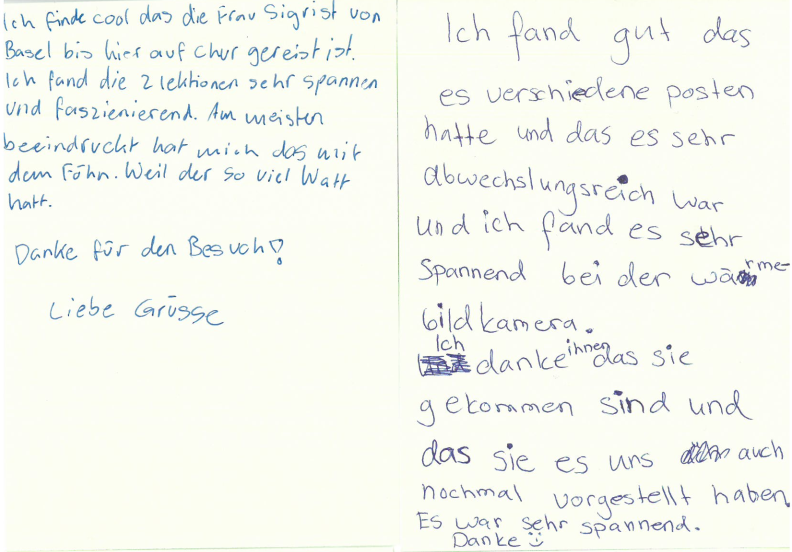 Ich finde cool das die Frau Sigrist von
Basel bis hier auf Chur gereist ist.
Ich fand die 2 lektionen sehr spannen
und faszienierend. Am meisten
beeindruckt hat mich das mit
dem Föhn. Weil der so viel Watt
hatt.
Danke für den Besuch!
Liebe Grüsse
Ich fand gut das
es verschiedene posten
hatte und das es sehr
abwechslungsreich war
und ich fand es sehr
Spannend bei der wärme-
bildkamera.
Ich danke ihnen das sie
gekommen sind und
das sie es uns auch
nochmal vorgestellt haben.
Es war sehr spannend.
Danke ☺